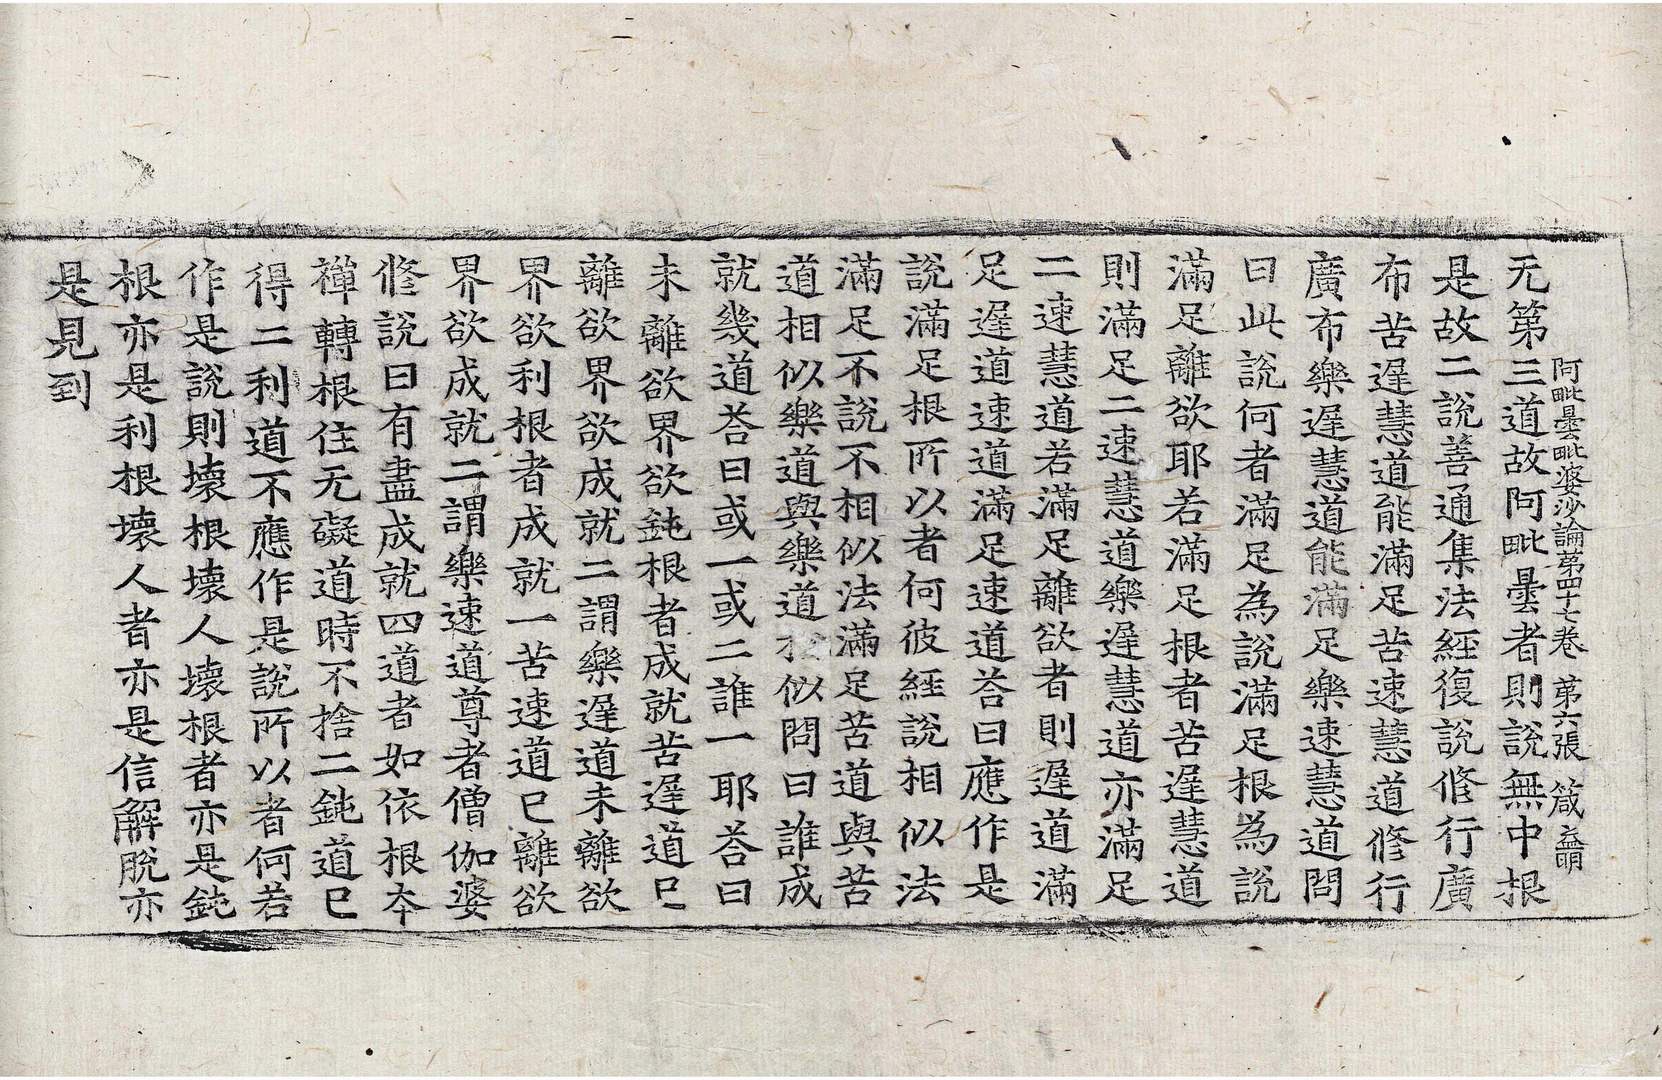 阿毗曇毗婆沙論第四十七卷 第六張 箴 益明
无第三道故阿毗曇者則說無中根
是故二說善通集法經復說修行廣
布苦遲慧道能滿足苦速慧道修行
廣布樂遲慧道能滿足樂速慧道問
曰此說何者滿足為說滿足根為說
滿足離欲耶若滿足根者苦遲慧道
則滿足二速慧道樂遲慧道亦滿足
二速慧道若滿足離欲者則遲道滿
足遲道速道滿足速道荅曰應作是
說滿足根所以者何彼經說相似法
滿足不說不相似法滿足苦道與苦
道相似樂道與樂道相似問曰誰成
就幾道荅曰或一或二誰一耶荅曰
未離欲界欲鈍根者成就苦遲道已
離欲界欲成就二謂樂遲道未離欲
界欲利根者成就一苦速道已離欲
界欲成就二謂樂速道尊者僧伽婆
修說曰有盡成就四道者如依根夲
禪轉根住无礙道時不捨二鈍道已
得二利道不應作是說所以者何若
作是說則壞根壞人壞根者亦是鈍
根亦是利根壞人者亦是信解脫亦
是見到